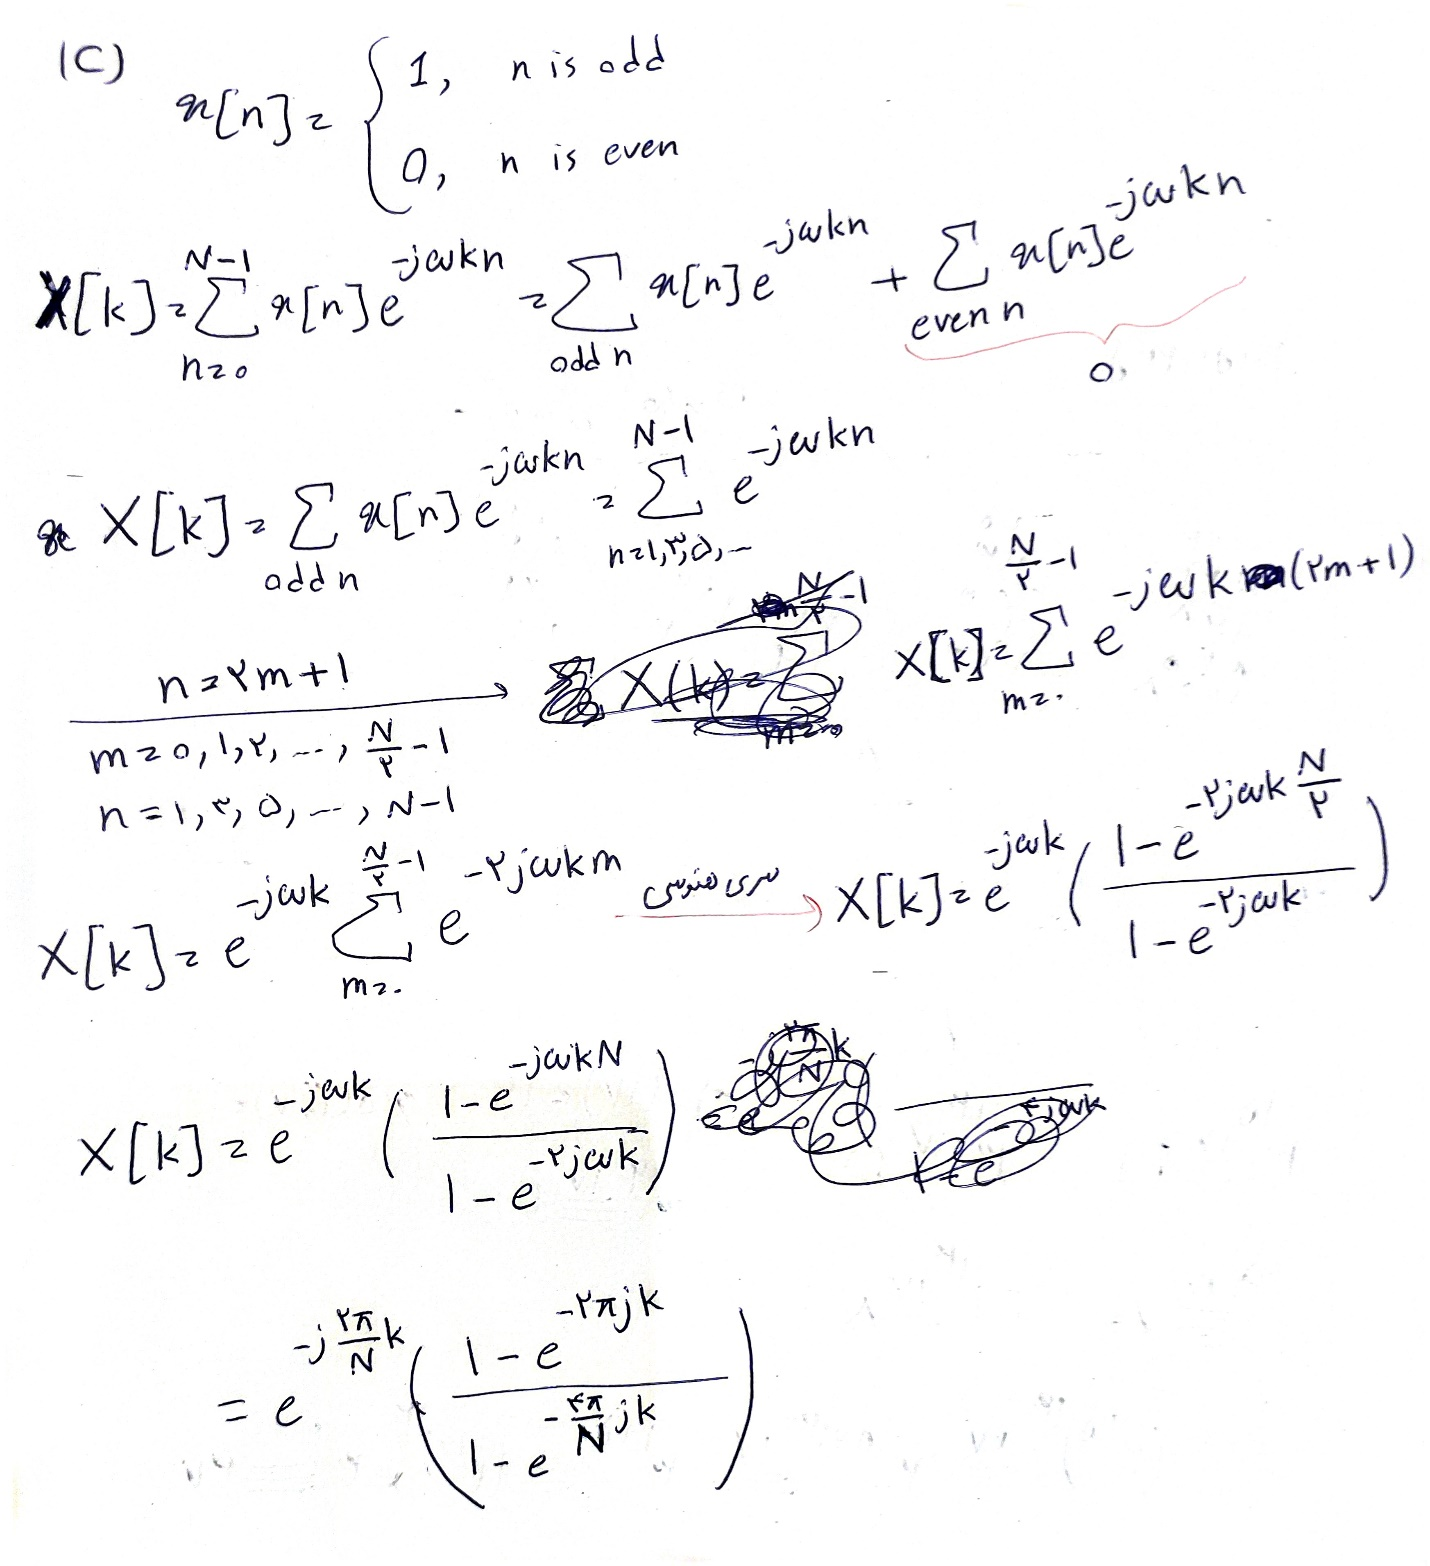 1C)
x[n] = { 1, n is odd
0, n is even
X[k] = ∑_{n=0}^{N-1} x[n] e^{-jωkn} = ∑_{odd n} x[n] e^{-jωkn} + ∑_{even n} x[n] e^{-jωkn}
0
X[k] = ∑_{odd n} x[n] e^{-jωkn} = ∑_{n=1,۳,۵,...}^{N-1} e^{-jωkn}
n=۲m+1
m=0,1,۲,...,N/۲-1
n=1,۳,۵,...,N-1
X[k] = ∑_{m=۰}^{N/۲-1} e^{-jωk(۲m+1)}
X[k] = e^{-jωk} ∑_{m=۰}^{N/۲-1} e^{-۲jωkm} سری هندسی → X[k] = e^{-jωk} ( (1-e^{-۲jωk N/۲}) / (1-e^{-۲jωk}) )
X[k] = e^{-jωk} ( (1-e^{-jωkN}) / (1-e^{-۲jωk}) )
= e^{-j ۲π/N k} ( (1-e^{-۲πjk}) / (1-e^{-۴π/N jk}) )